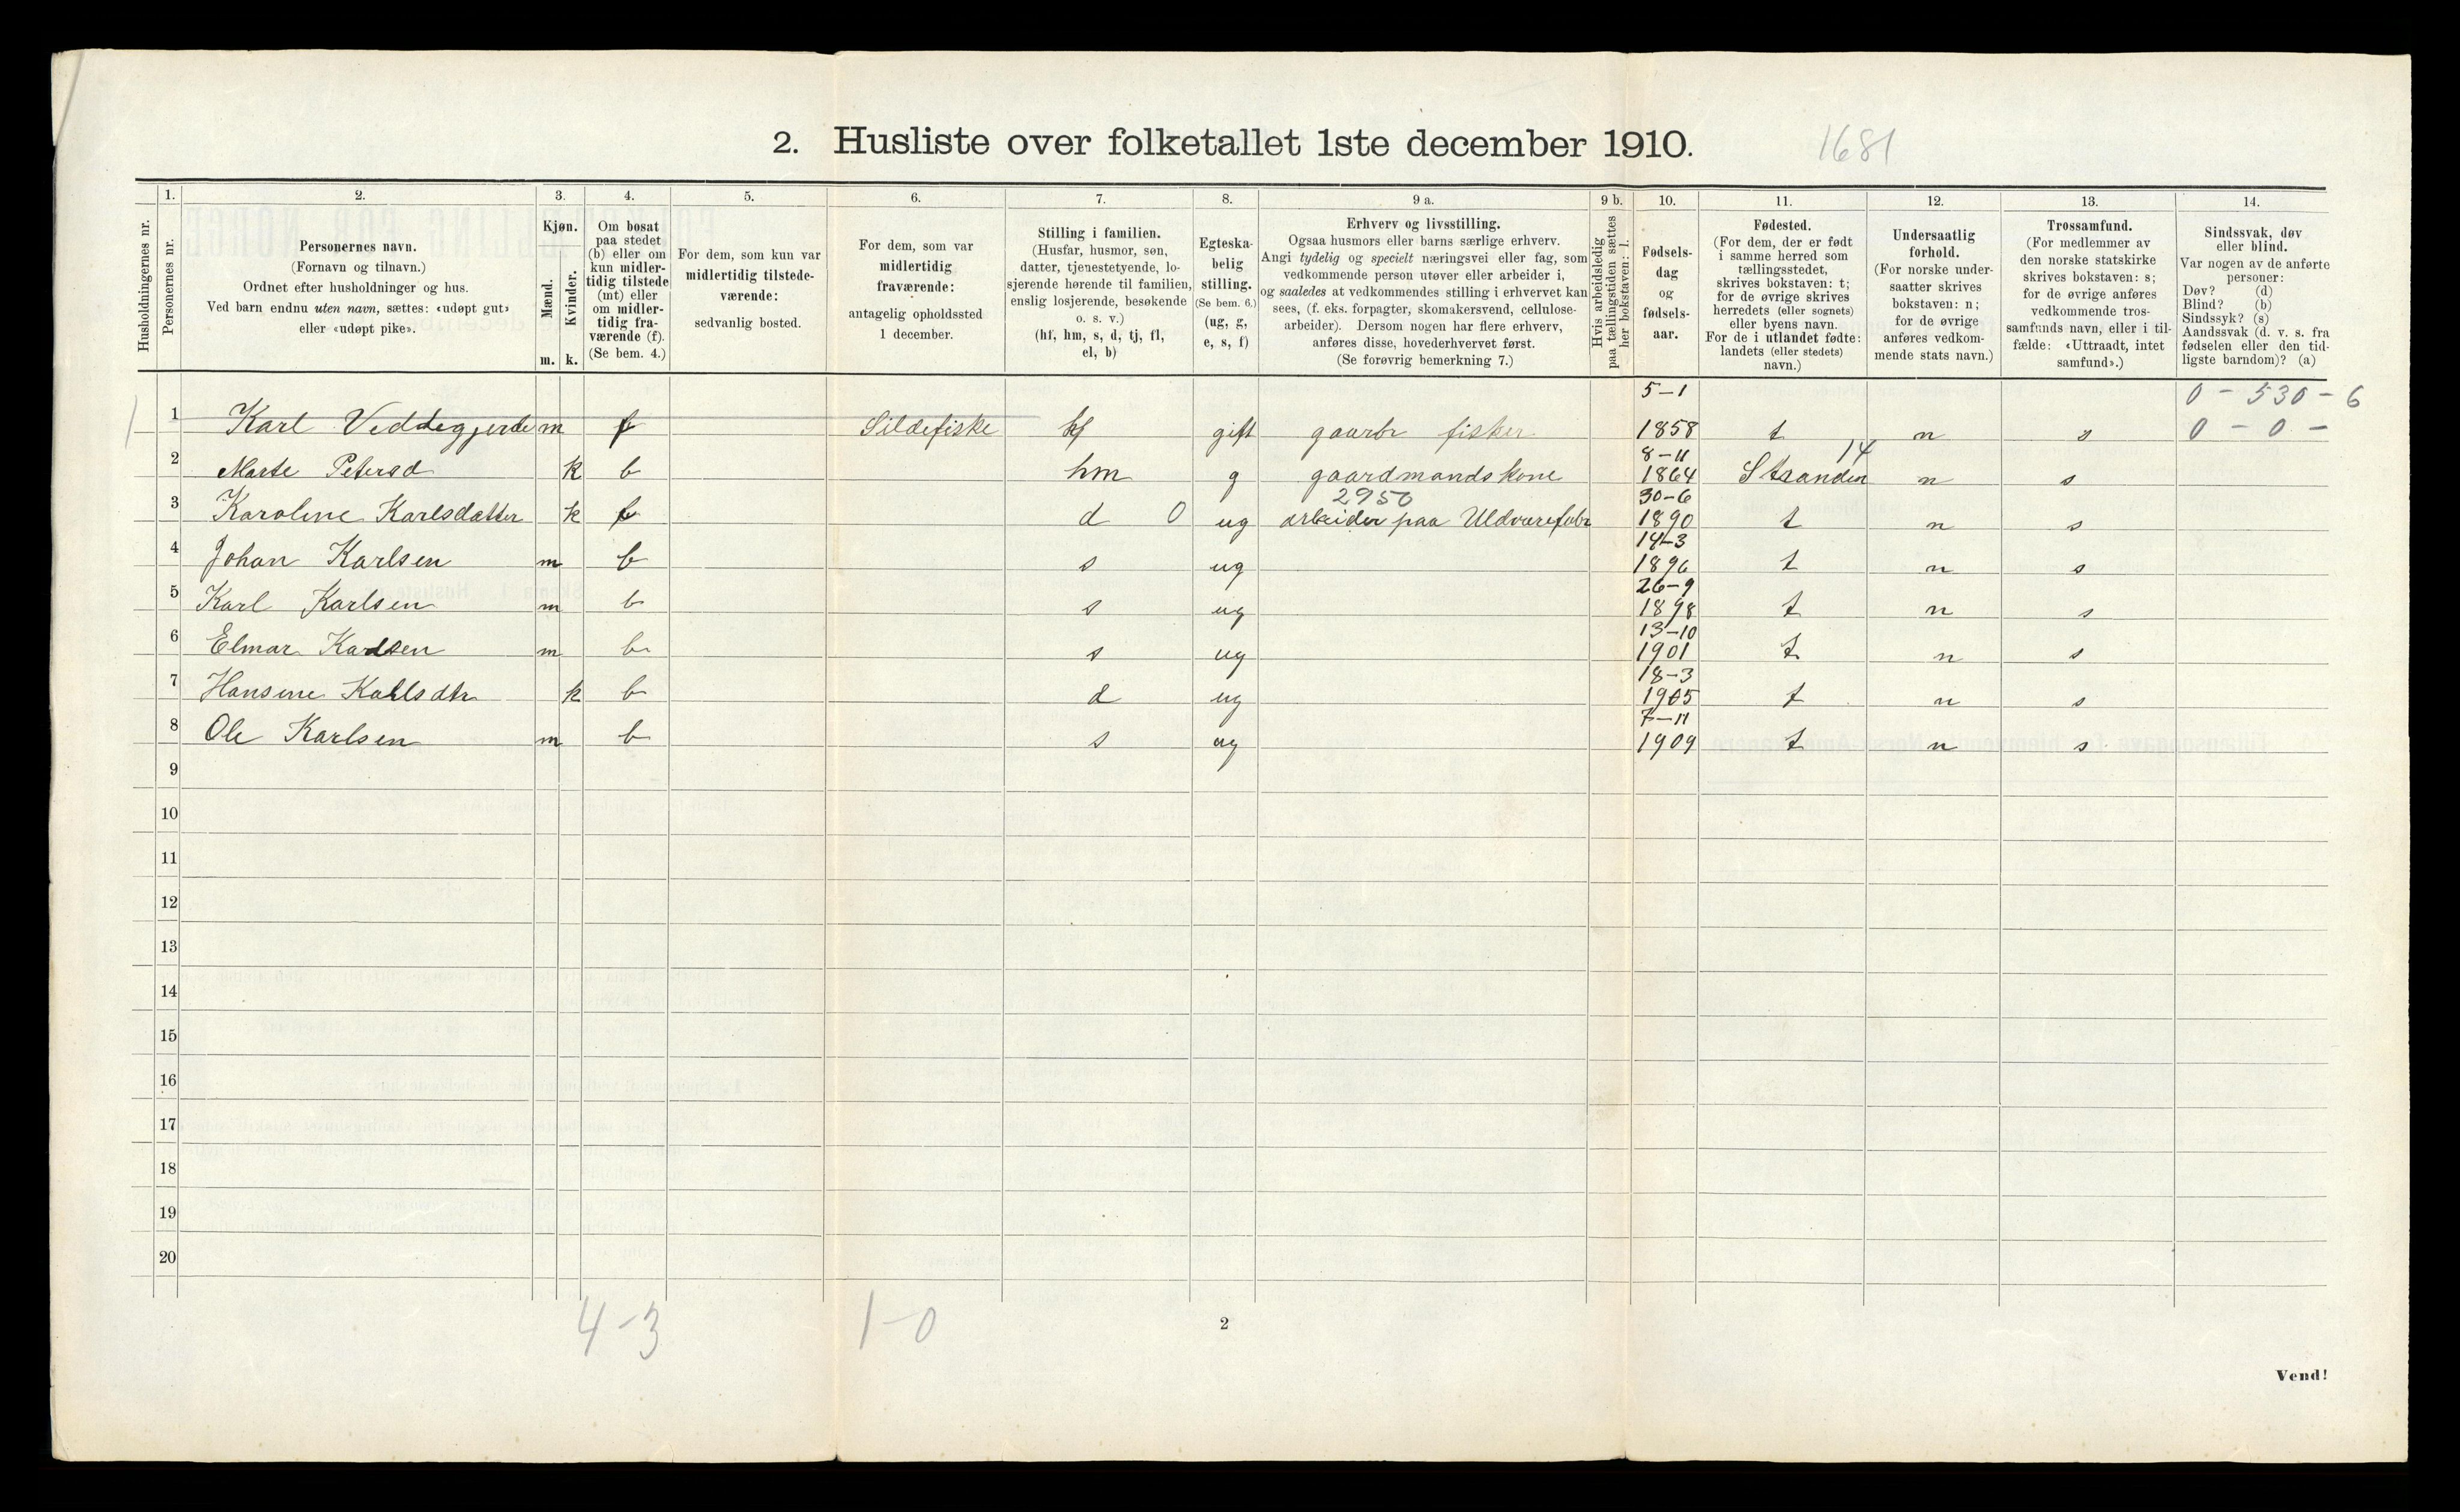 2. Husliste over folketallet 1ste december 1910.
1681
Husholdningernes nr.
1.
Personernes nr.
2.
Personernes navn.
(Fornavn og tilnavn.)
Ordnet efter husholdninger og hus.
Ved barn endnu uten navn, sættes: «udøpt gut»
eller «udøpt pike».
3.
Kjøn.
Mænd.
Kvinder.
m. k.
4.
Om bosat
paa stedet
(b) eller om
kun midler-
tidig tilstede
(mt) eller
om midler-
tidig fra-
værende (f).
(Se bem. 4.)
5.
For dem, som kun var
midlertidig tilstede-
værende:
sedvanlig bosted.
6.
For dem, som var
midlertidig
fraværende:
antagelig opholdssted
1 december.
7.
Stilling i familien.
(Husfar, husmor, søn,
datter, tjenestetyende, lo-
sjerende hørende til familien,
enslig losjerende, besøkende
o. s. v.)
(hf, hm, s, d, tj, fl,
el, b)
8.
Egteska-
belig
stilling.
(Se bem. 6.)
(ug, g,
e, s, f)
9 a.
Erhverv og livsstilling.
Ogsaa husmors eller barns særlige erhverv.
Angi tydelig og specielt næringsvei eller fag, som
vedkommende person utøver eller arbeider i,
og saaledes at vedkommendes stilling i erhvervet kan
sees, (f. eks. forpagter, skomakersvend, cellulose-
arbeider). Dersom nogen har flere erhverv,
anføres disse, hovederhvervet først.
(Se forøvrig bemerkning 7.)
9 b.
Hvis arbeidsledig
paa tællingstiden sættes
her bokstaven: l.
10.
Fødsels-
dag
og
fødsels-
aar.
11.
Fødested.
(For dem, der er født
i samme herred som
tællingsstedet,
skrives bokstaven: t;
for de øvrige skrives
herredets (eller sognets)
eller byens navn.
For de i utlandet fødte:
landets (eller stedets)
navn.)
12.
Undersaatlig
forhold.
(For norske under-
saatter skrives
bokstaven: n;
for de øvrige
anføres vedkom-
mende stats navn.)
13.
Trossamfund.
(For medlemmer av
den norske statskirke
skrives bokstaven: s;
for de øvrige anføres
vedkommende tros-
samfunds navn, eller i til-
fælde: «Uttraadt, intet
samfund».)
14.
Sindssvak, døv
eller blind.
Var nogen av de anførte
personer:
Døv? (d)
Blind? (b)
Sindssyk? (s)
Aandssvak (d. v. s. fra
fødselen eller den tid-
ligste barndom)? (a)
5-1 0 - 530 - 6
1 1 Karl Veddegjerde m f Sildefiske hf gift gaarbr fisker 1858 t n s 0 - 0 -
8-11 14
2 Marte Petersd k b hm g gaardmandskone 1864 Stranden n s
2950 30-6
3 Karoline Karlsdatter k f d 0 ug arbeider paa Uldvarefabr 1890 t n s
14-3
4 Johan Karlsen m b s ug 1896 t n s
26-9
5 Karl Karlsen m b s ug 1898 t n s
13-10
6 Elmar Karlsen m b s ug 1901 t n s
18-3
7 Hansine Karlsdtr k b d ug 1905 t n s
7-11
8 Ole Karlsen m b s ug 1909 t n s
9
10
11
12
13
14
15
16
17
18
19
20
4-3 1-0
2
Vend!